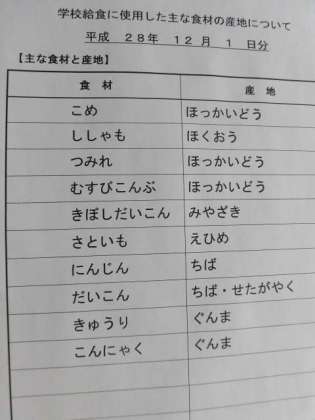 学校給食に使用した主な食材の産地について
平成 28年 12 月 1 日分
【主な食材と産地】
食 材 産 地
こめ ほっかいどう
ししゃも ほくおう
つみれ ほっかいどう
むすびこんぶ ほっかいどう
きぼしだいこん みやざき
さといも えひめ
にんじん ちば
だいこん ちば・せたがやく
きゅうり ぐんま
こんにゃく ぐんま